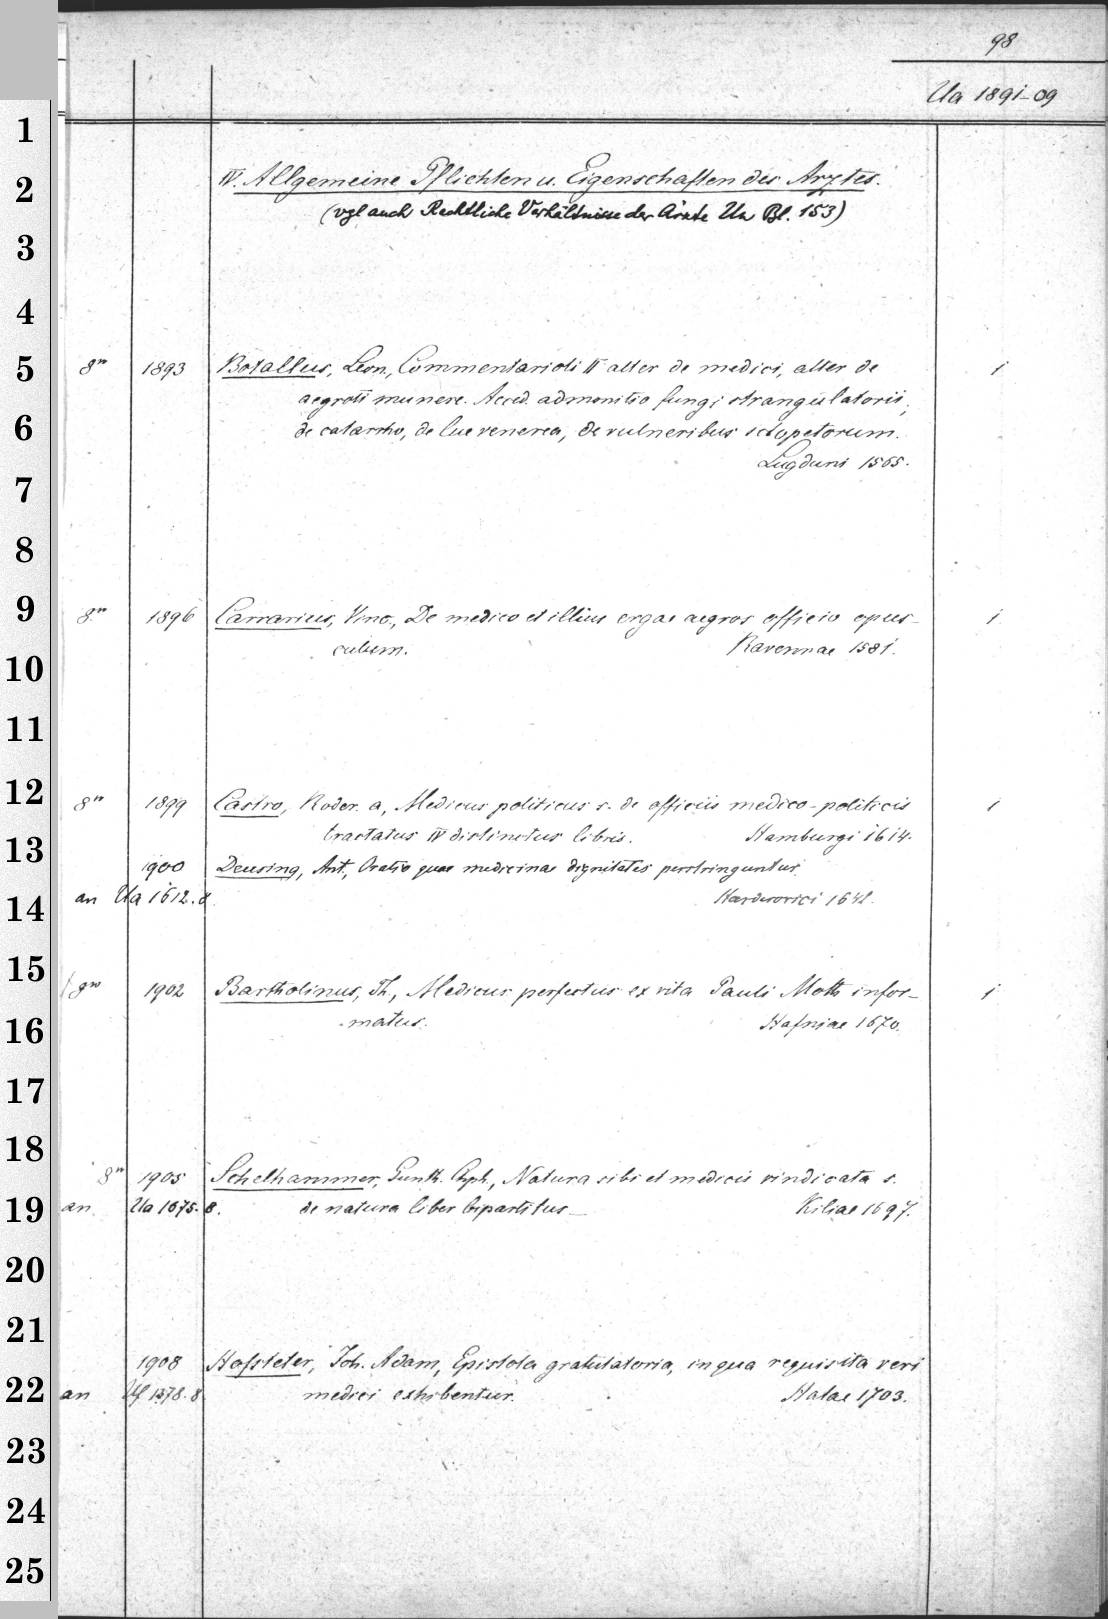 98
Ua 1891-09
1
2
3
4
5
6
7
8
9
10
11
12
13
14
15
16
17
18
19
20
21
22
23
24
25
IV. Allgemeine Pflichten u. Eigenschaften des Arztes.
(vgl auch Rechtliche Verhältnisse der Ärzte Ua Bl. 153)
8° 1893 Botallus, Leon., Commentarioli II alter de medici, alter de 1
aegroti munere. Acced. admonitio fungi strangulatorii;
de catarrho, de lue venerea, de vulneribus sclopetorum.
Lugduni 1565.
8° 1896 Carrarius, Vinc., De medico et illius erga aegros officio opus- 1
culum. Ravennae 1581.
8° 1899 Castro, Roder. a, Medicus politicus s. de officiis medico-politicis 1
tractatus IV distinctus libris. Hamburgi 1614.
1900 Deusing, Ant., Oratio qua medicinae dignitatis perstringuntur.
an Ua 1612.8. Harderovici 1642.
8° 1902 Bartholinus, Th., Medicus perfectus ex vita Pauli Moth infor- 1
matus. Hafniae 1670.
8° 1905 Schelhammer, Gunth. Chph., Natura sibi et medicis vindicata s.
an Ua 1675.8. de natura liber bipartitus Kiliae 1697.
1908 Hofsteter, Joh. Adam, Epistola gratulatoria, in qua requisita veri
an Uf 1378.8 medici exhibentur. Halae 1703.